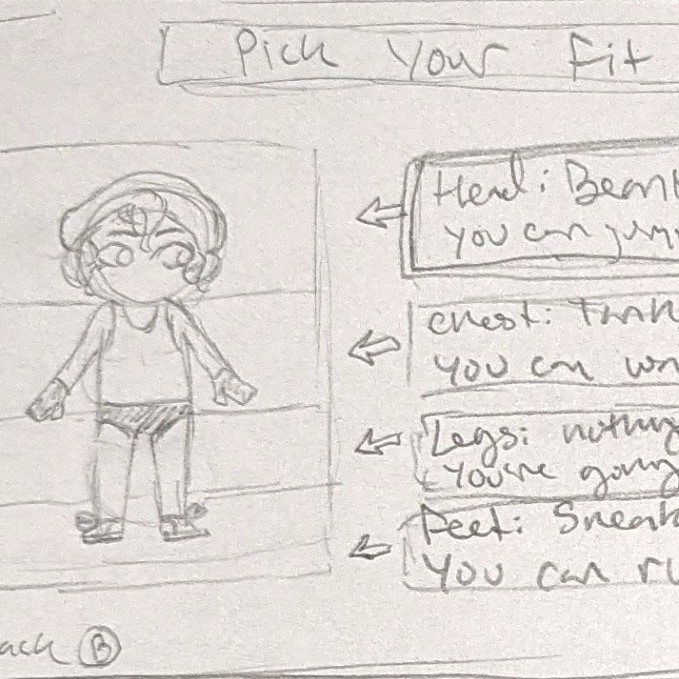 Pick Your Fit
Head: Bean
you can jum
chest: Tank
you can
Legs: nothing
you're going
Feet: Sneak
You can ru
ack B